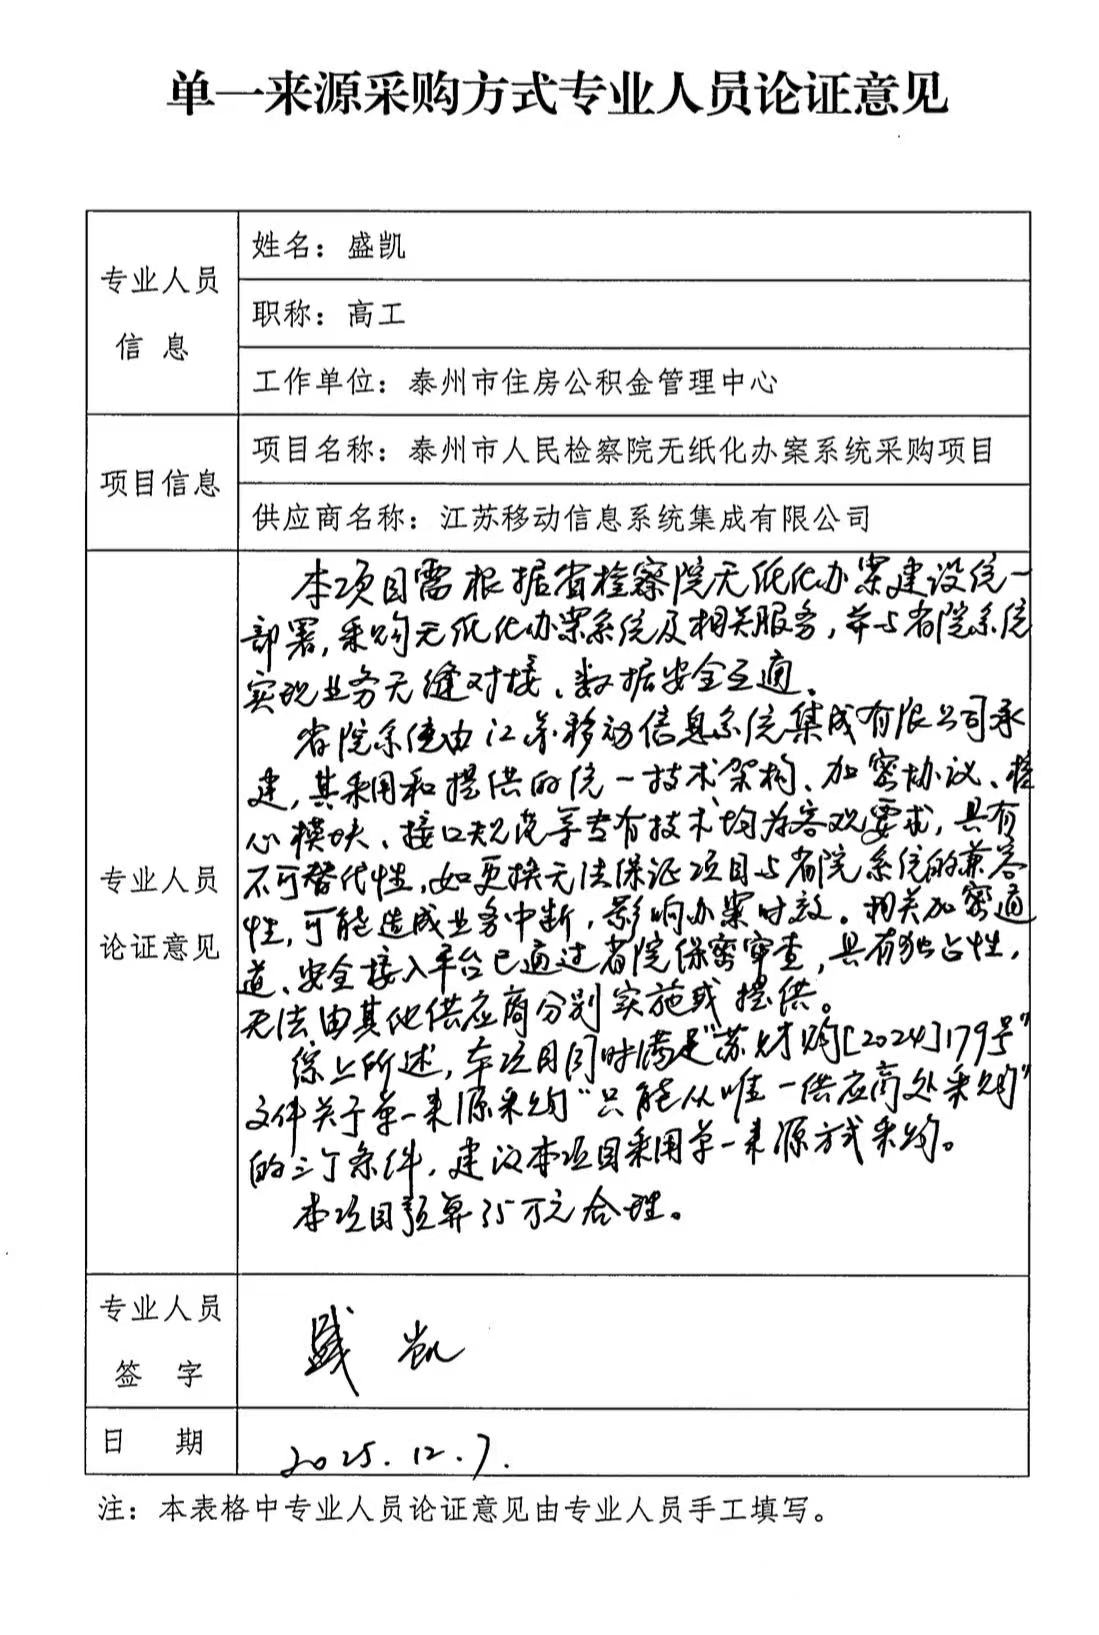 单一来源采购方式专业人员论证意见
专业人员
信 息
姓名：盛凯
职称：高工
工作单位：泰州市住房公积金管理中心
项目信息
项目名称：泰州市人民检察院无纸化办案系统采购项目
供应商名称：江苏移动信息系统集成有限公司
专业人员
论证意见
本项目需根据省检察院无纸化办案建设统一
部署，采购无纸化办案系统及相关服务，并与省院系统
实现业务无缝对接、数据安全互通。
省院系统由江苏移动信息系统集成有限公司承
建，其采用和提供的统一技术架构、加密协议、核
心模块、接口规范等专有技术均为客观要求，具有
不可替代性，如更换无法保证项目与省院系统的兼容
性，可能造成业务中断，影响办案时效。相关加密通
道、安全接入平台已通过省院保密审查，具有独占性，
无法由其他供应商分别实施或提供。
综上所述，本项目同时满足“苏财购[2024]179号”
文件关于单一来源采购“只能从唯一供应商处采购”
的三个条件，建议本项目采用单一来源方式采购。
本项目预算35万元合理。
专业人员
签 字
盛凯
日 期
2025.12.7.
注：本表格中专业人员论证意见由专业人员手工填写。